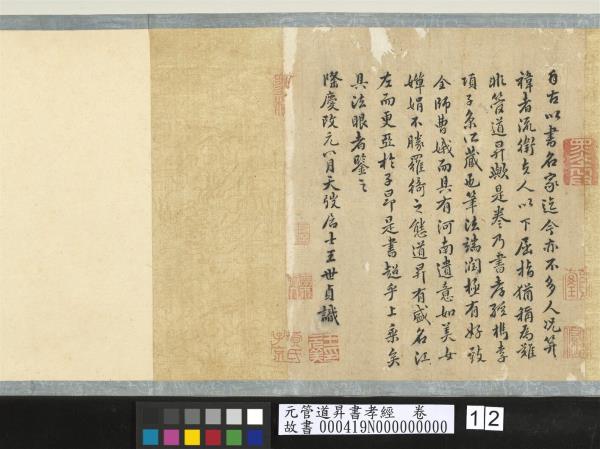 自古以書名家迄今亦不多人況笄
褘者流衛夫人以下屈指猶稱為難
非管道昇歟是卷乃書孝經檇李
項子京江藏也筆法端潤極有好致
全師曹娥而具有河南遺意如美女
嬋娟不勝羅綺之態道昇有盛名江
左而更亞於子昂是書超乎上乘矣
具法眼者鑒之
隆慶改元八月天弢居士王世貞識
元管道昇書孝經 卷
故書 000419N000000000
12